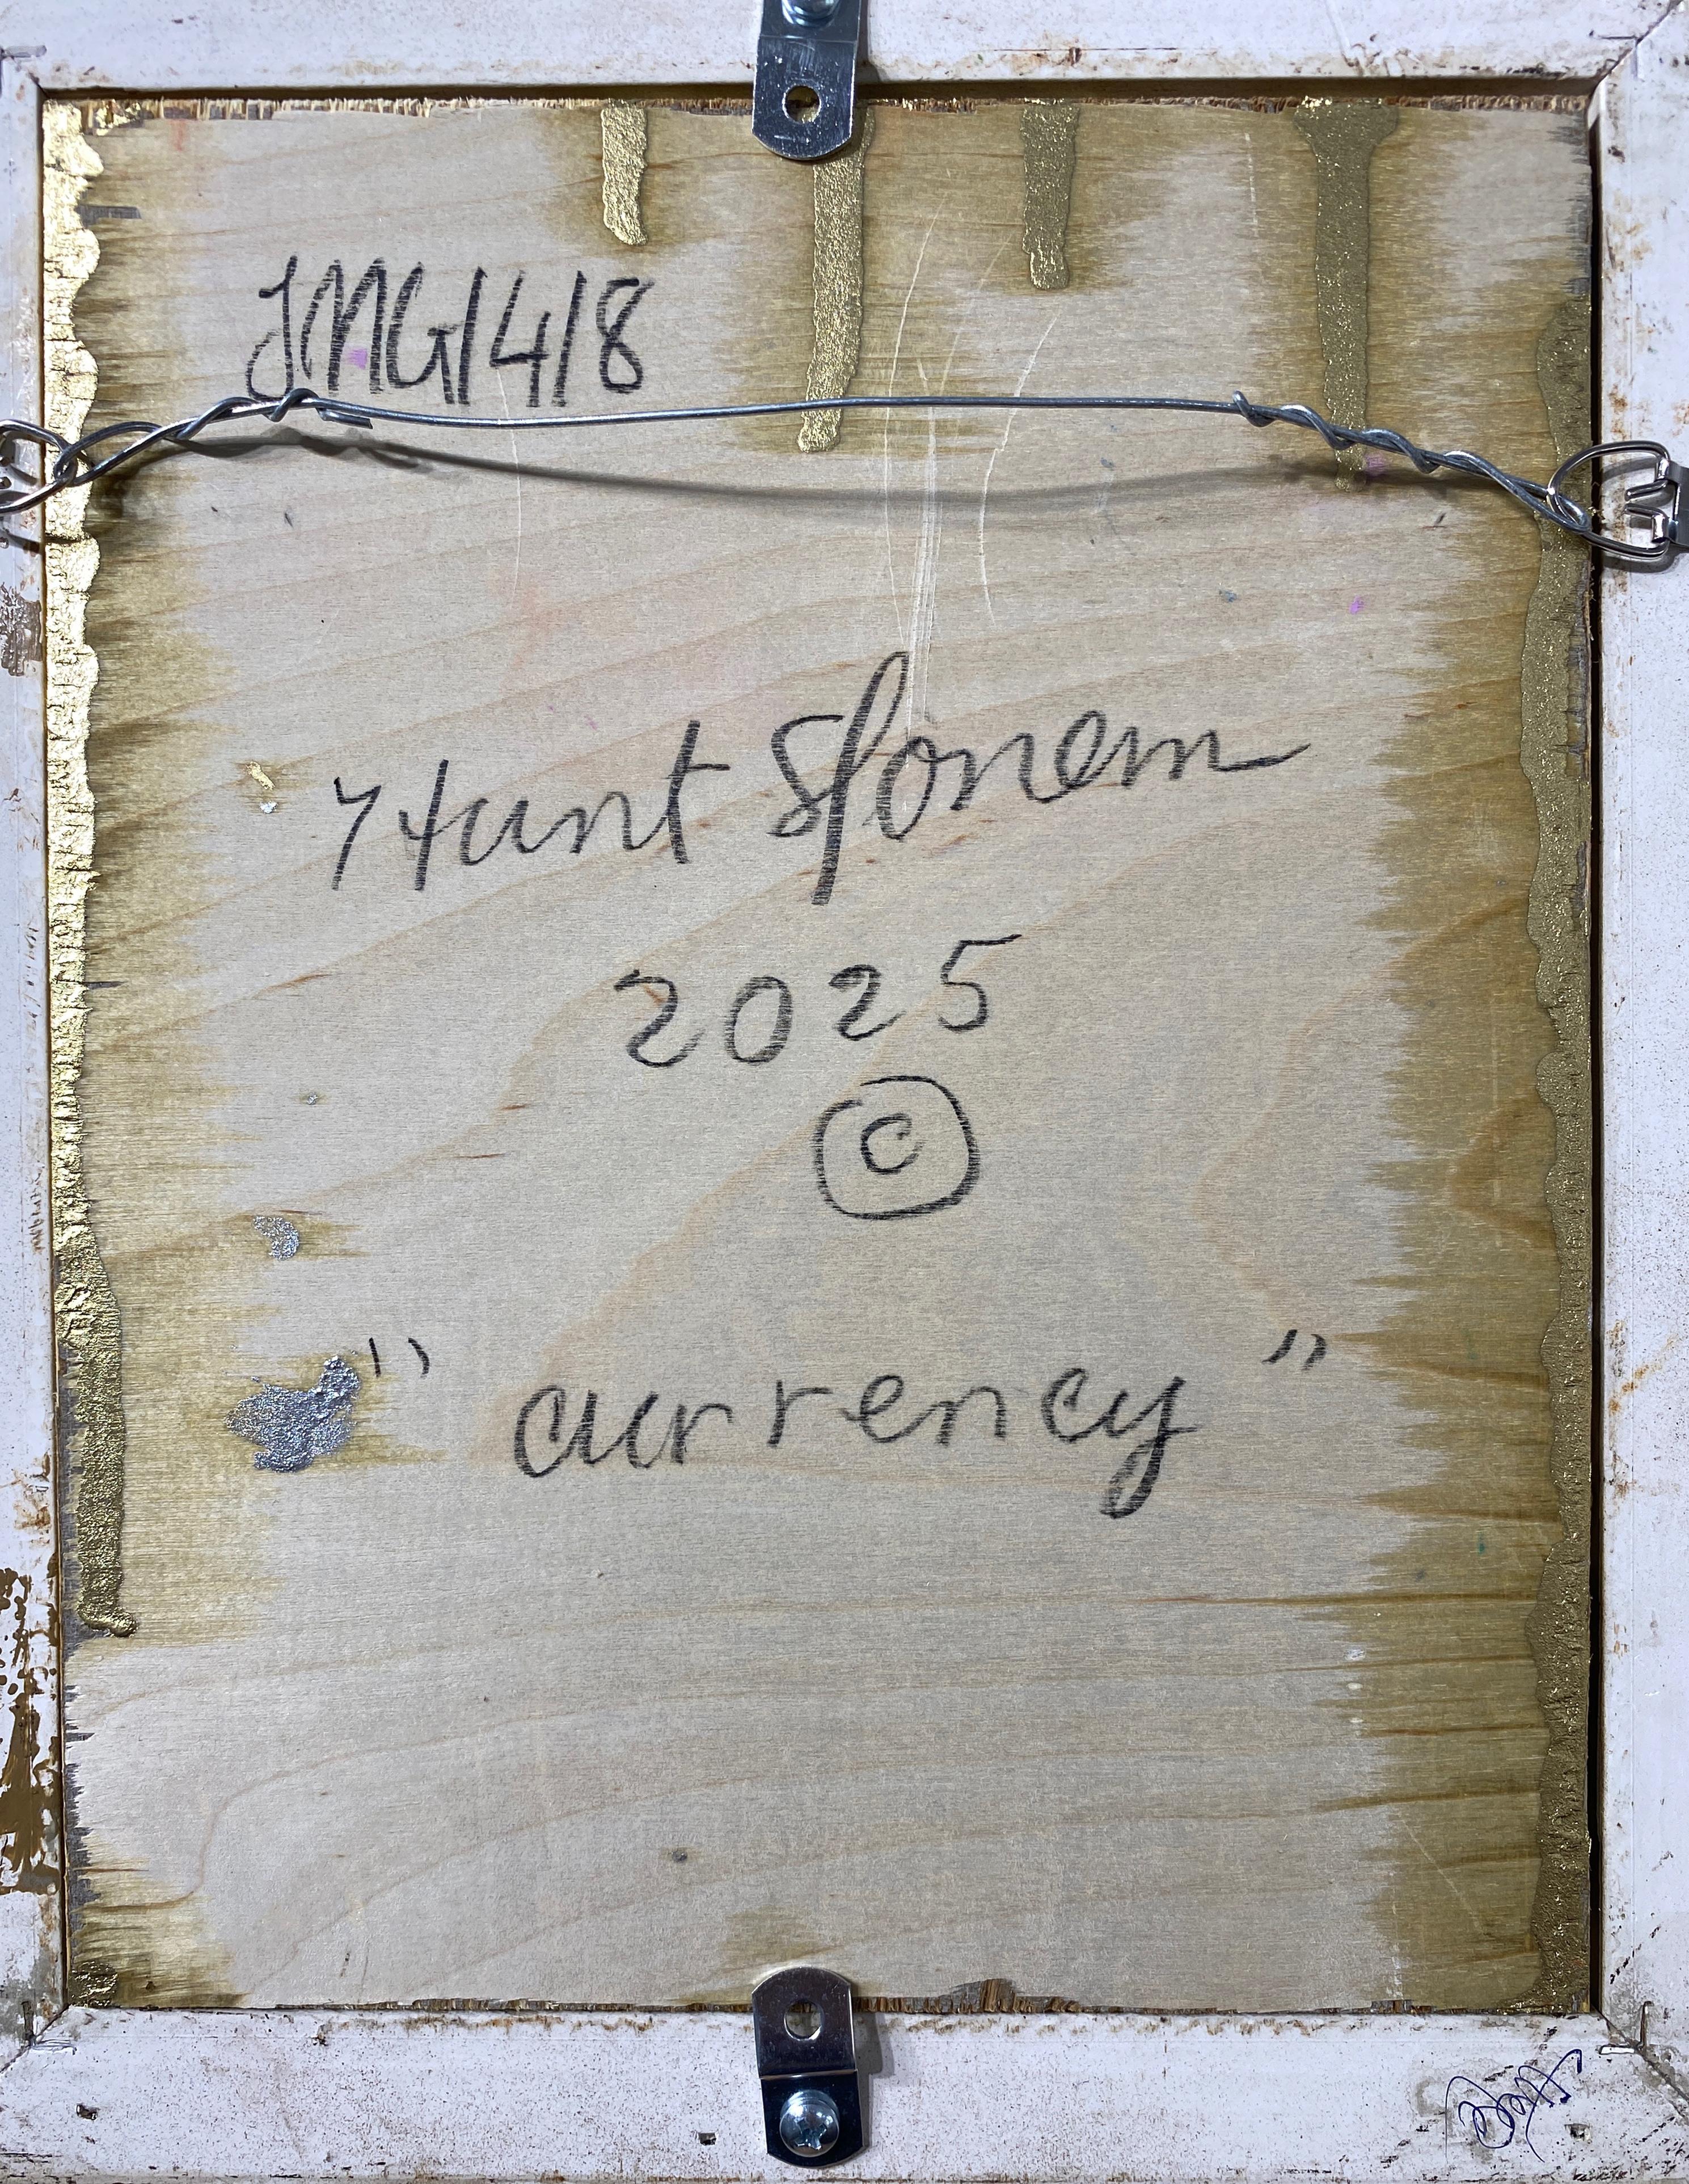 JMG1418
Hunt Slonem
2025
©
"currency"